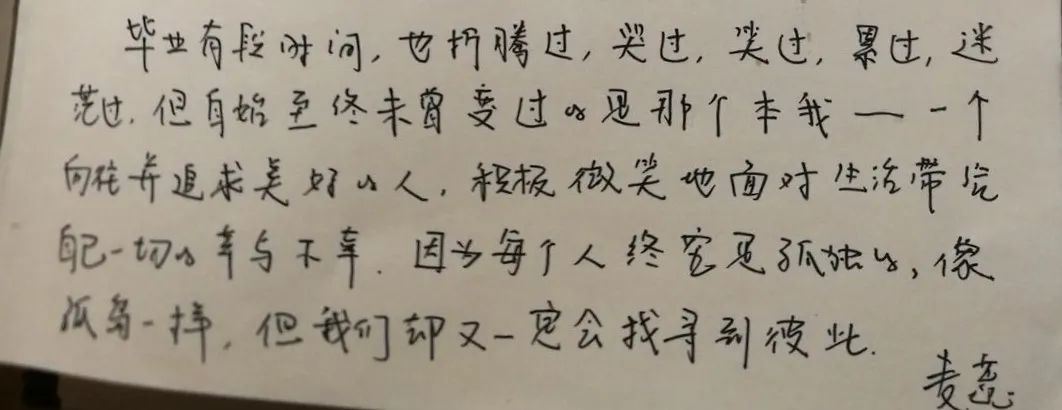 毕业有段时间,也折腾过,哭过,笑过,累过,迷
茫过.但自始至终未曾变过的是那个本我——一个
向往并追求美好的人,积极微笑地面对生活带给
自己一切的幸与不幸.因为每个人终究是孤独的,像
孤岛一样,但我们却又一定会找寻到彼此.
麦蕊